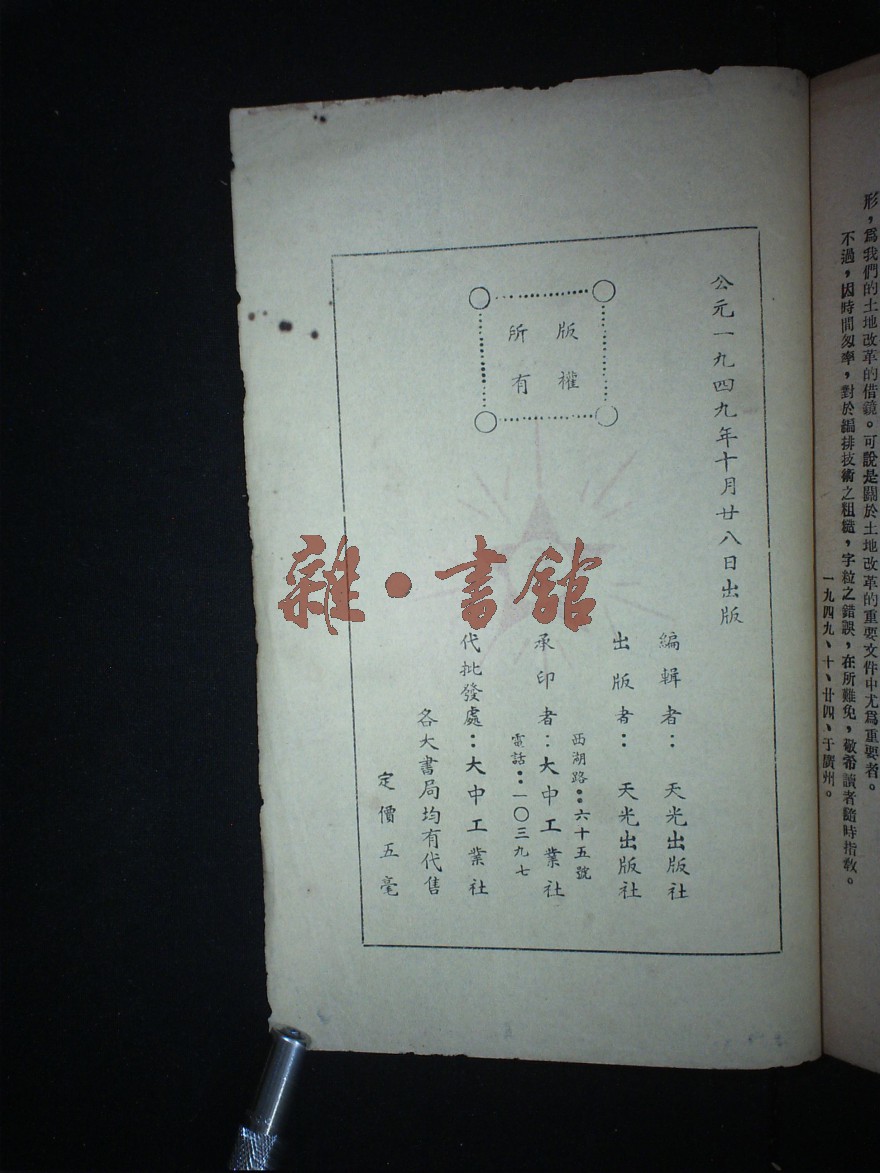 形，爲我們的土地改革的借鏡。可說是關於土地改革的重要文件中尤爲重要者。
不過，因時間匆率，對於編排技術之粗糙，字粒之錯誤，在所難免，敬希讀者隨時指敎。
一九四九、十、廿四、于廣州。
公元一九四九年十月廿八日出版
版權
所有
編輯者：天光出版社
出版者：天光出版社
西湖路：六十五號
承印者：大中工業社
電話：一〇三九七
代批發處：大中工業社
各大書局均有代售
定價五毫
雜·書館